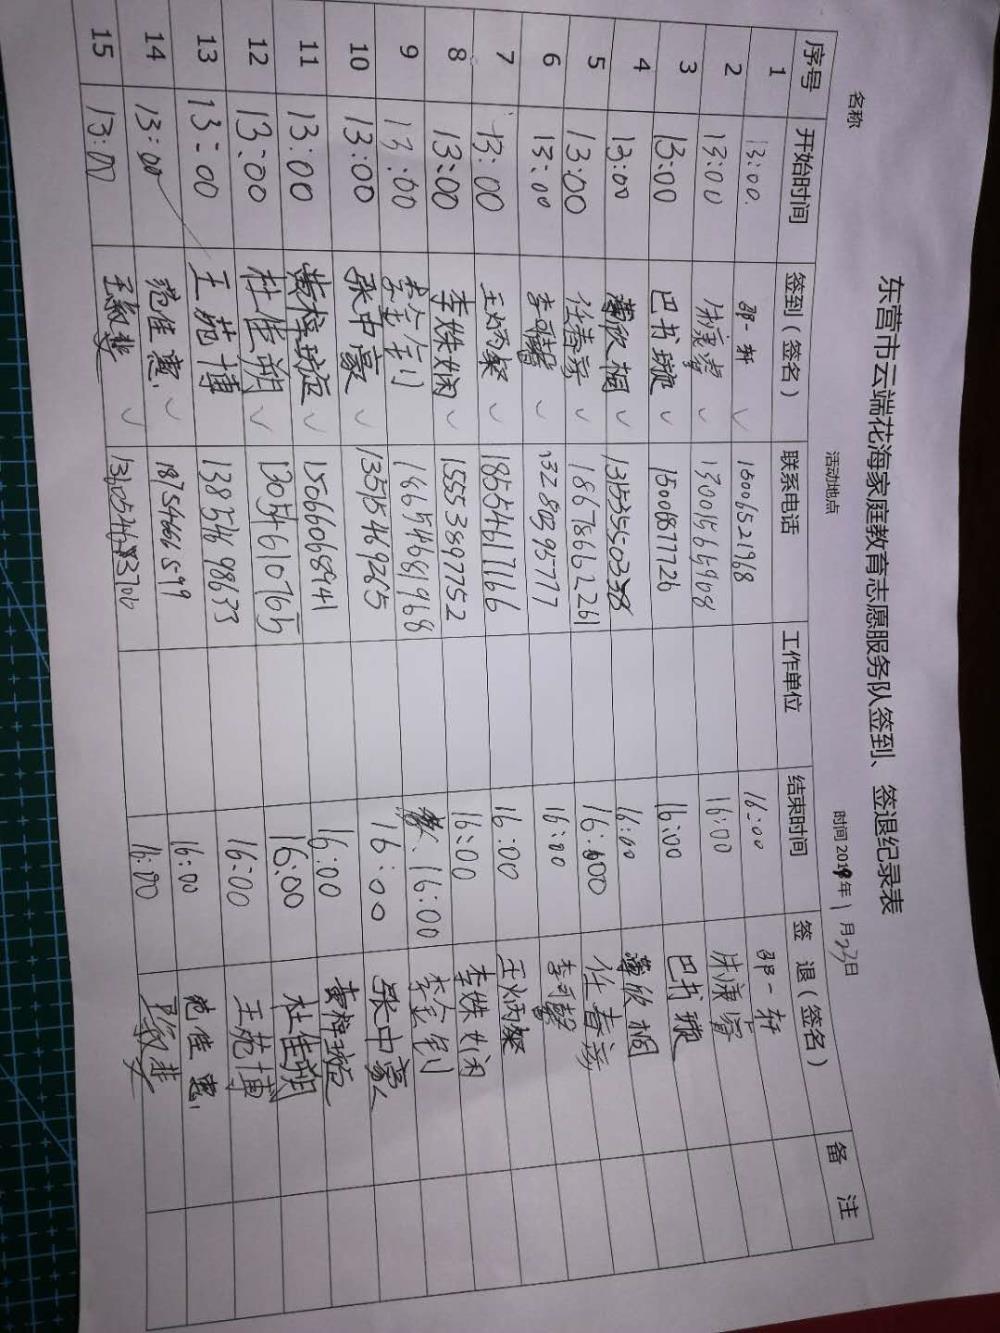 东营市云端花海家庭教育志愿服务队签到、签退纪录表
名称 活动地点 时间2019年1月23日
序号 开始时间 签到(签名) 联系电话 工作单位 结束时间 签 退(签名) 备 注
1 13:00. 邵一轩 15006521968 16:00 邵一轩
2 13:00 13001565908 16:00
3 13:00 巴书璇 15006877726 16:00 巴书璇
4 13:00 薄欣桐 16:00 薄欣桐
5 13:00 任春彦 18678662261 16:00
6 13:00 李可馨 13280295777 16:00 李可馨
7 13:00 王炳粲 18554617166 16:00 王炳粲
8 13:00 李姝娴 15553897752 16:00 李姝娴
9 13:00 李金钊 18654681968 16:00 李金钊
10 13:00 张中豪 13515469265 16:00 张中豪
11 13:00 黄梓璇 15066068941 16:00 黄梓璇
12 13:00 杜佳朔 13054610765 16:00 杜佳朔
13 13:00 王苑博 13854698633 16:00 王苑博
14 13:00 范佳惠 18754666599 16:00 范佳惠
15 13:00 16:00